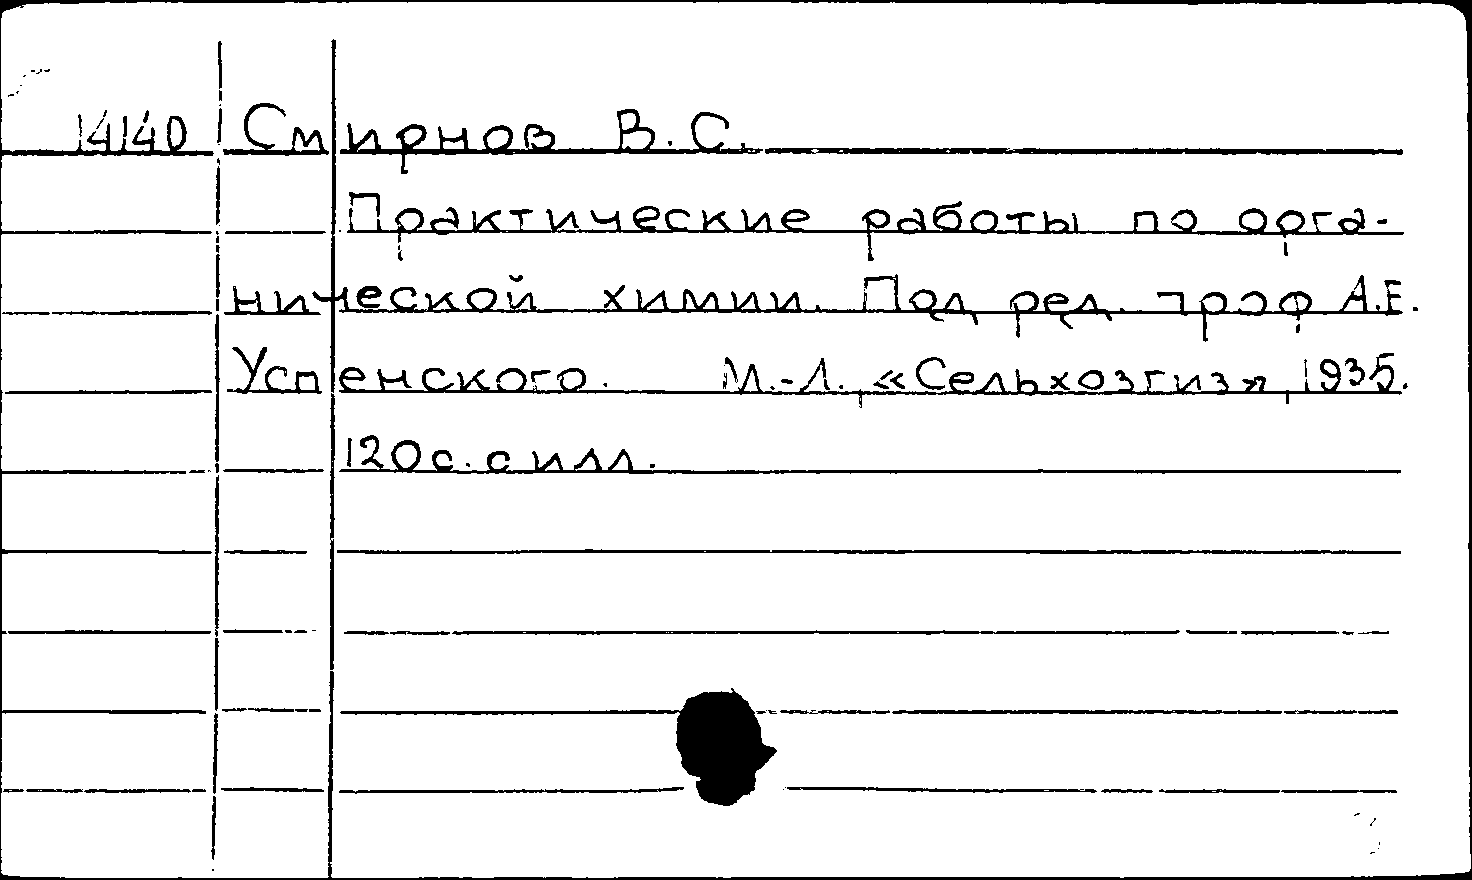 14140 Смирнов В. С.
Практические работы по орга-
нической химии. Под ред. проф А.Е.
Успенского. М.-Л., «Сельхозгиз», 1935.
120 с. с илл.